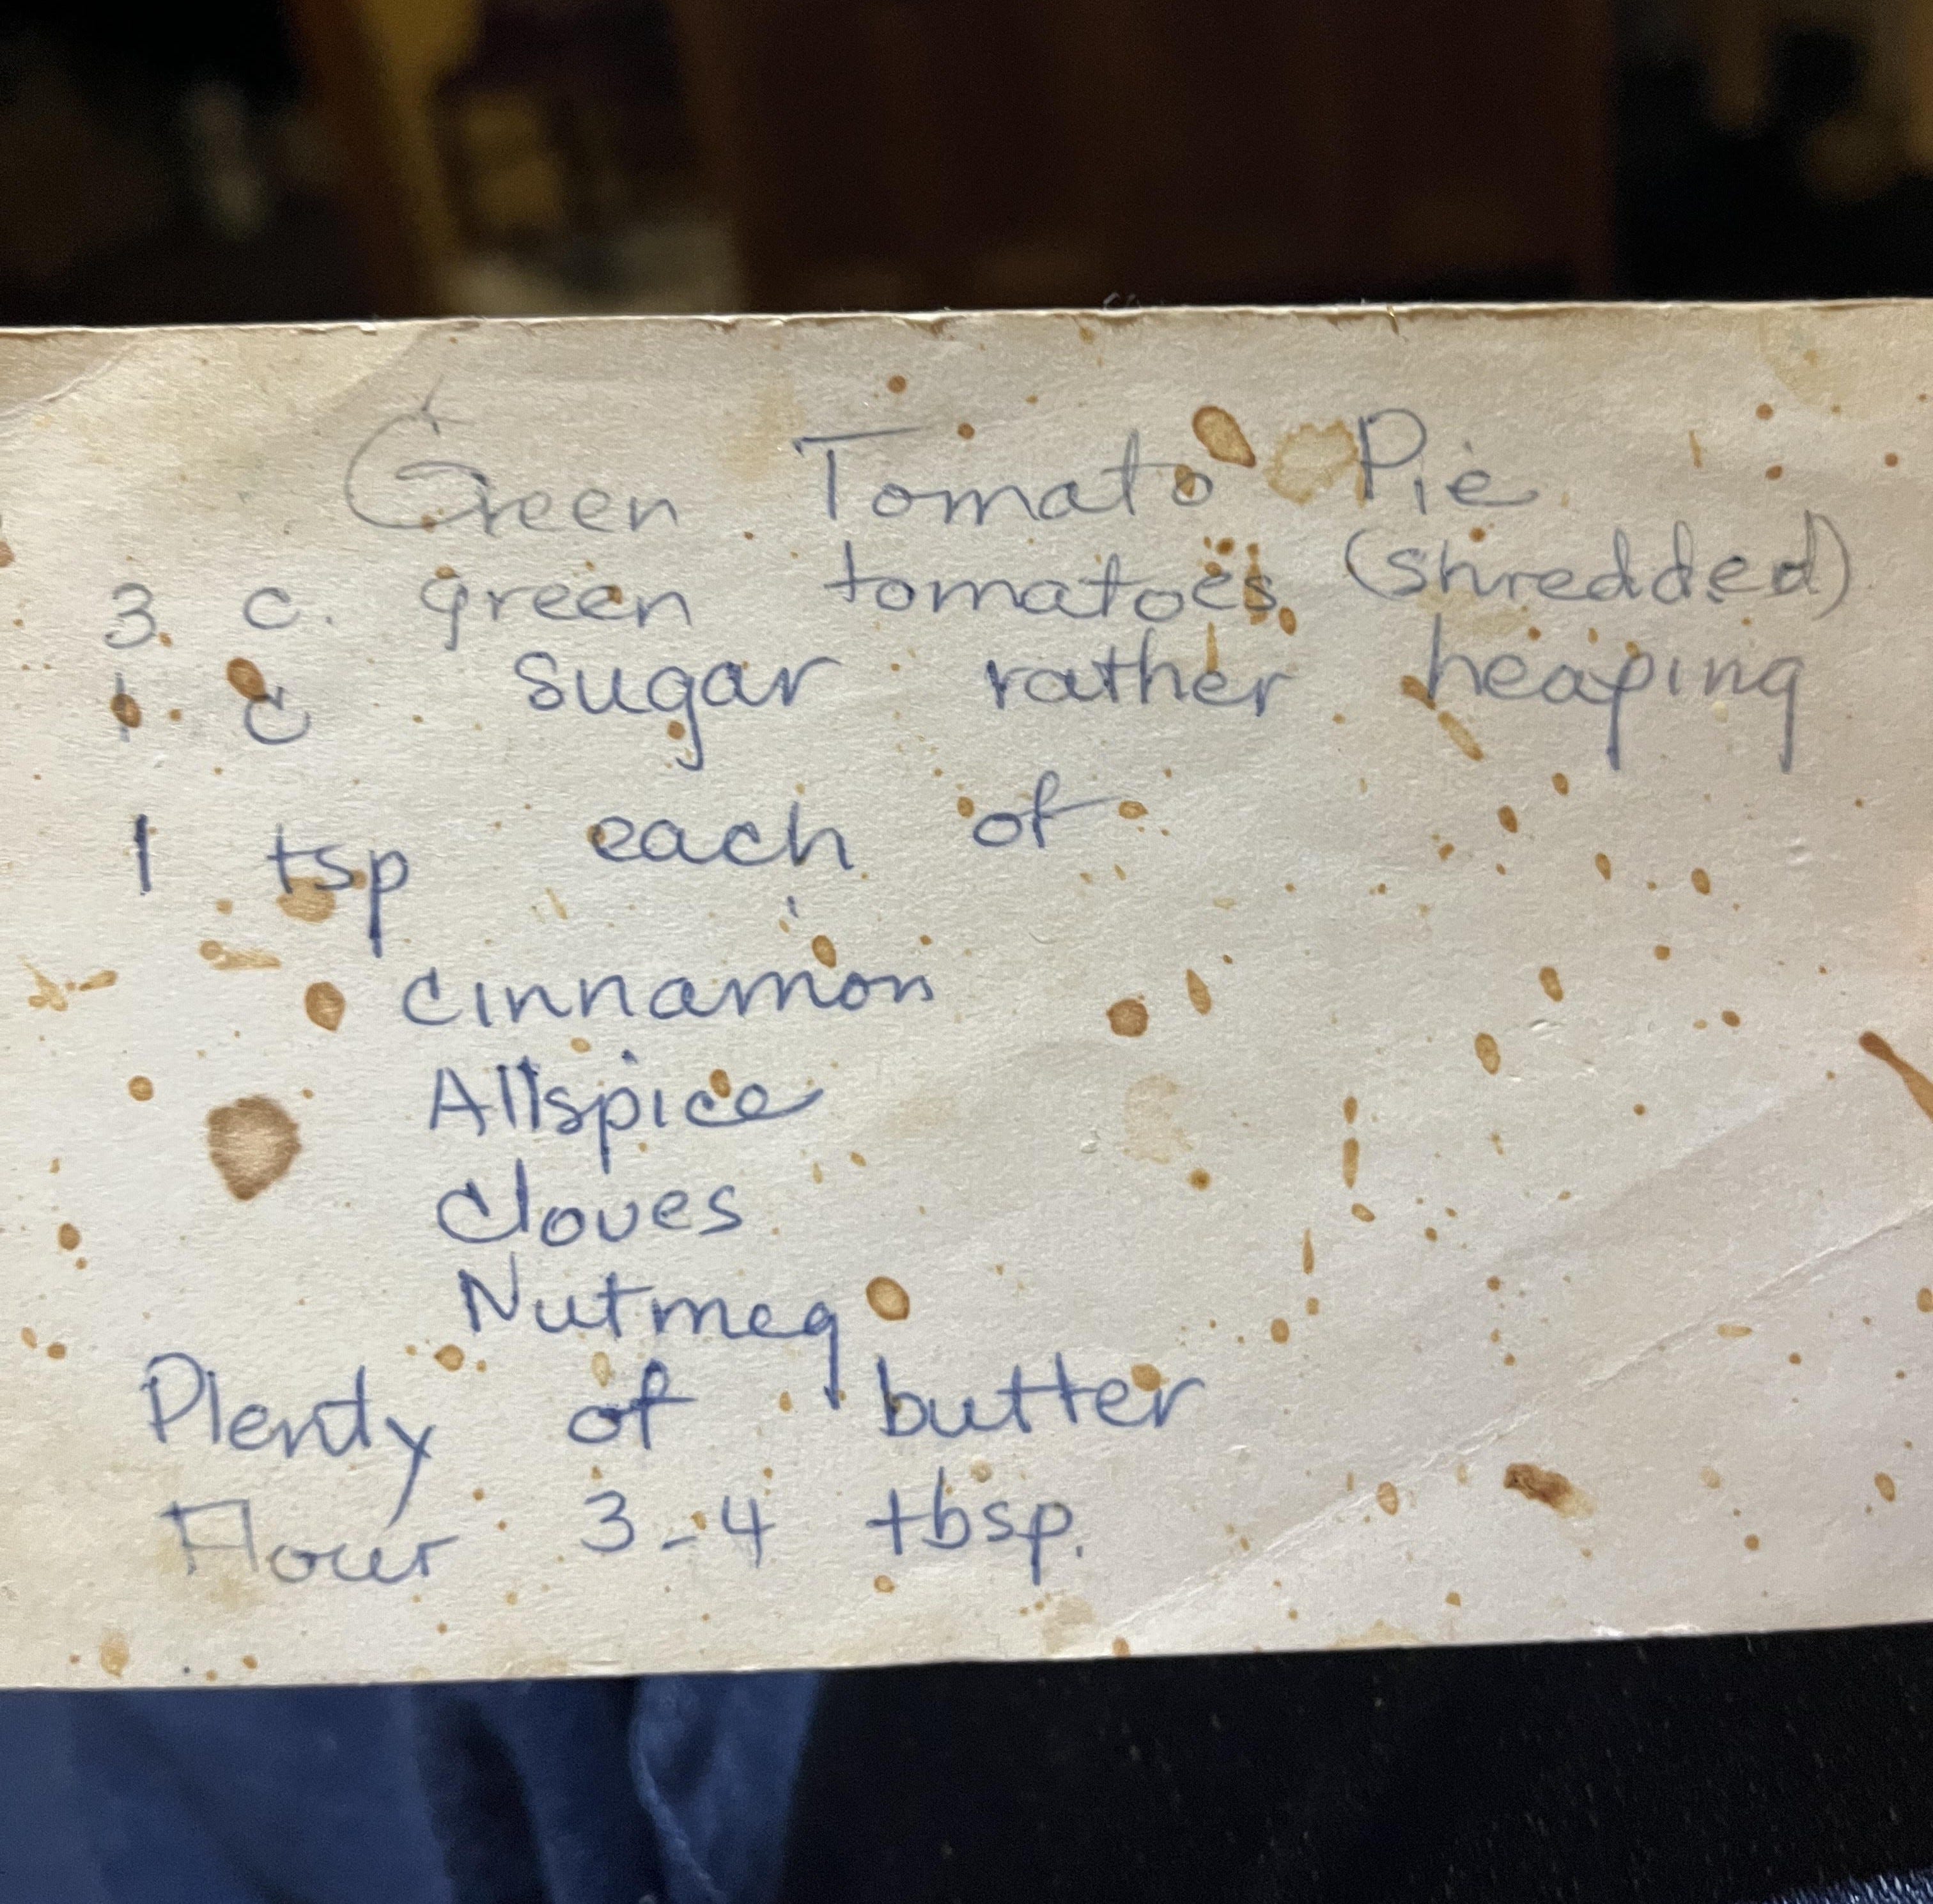 Green Tomato Pie
3 c. green tomatoes (shredded)
1 c sugar rather heaping
1 tsp each of
cinnamon
Allspice
cloves
Nutmeg
Plenty of butter
Flour 3-4 tbsp.